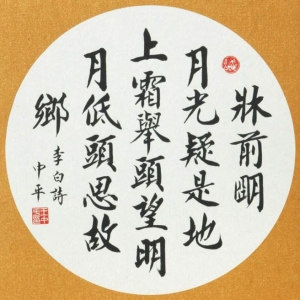 牀前明
月光疑是地
上霜舉頭望明
月低頭思故
鄉
李白詩
申平